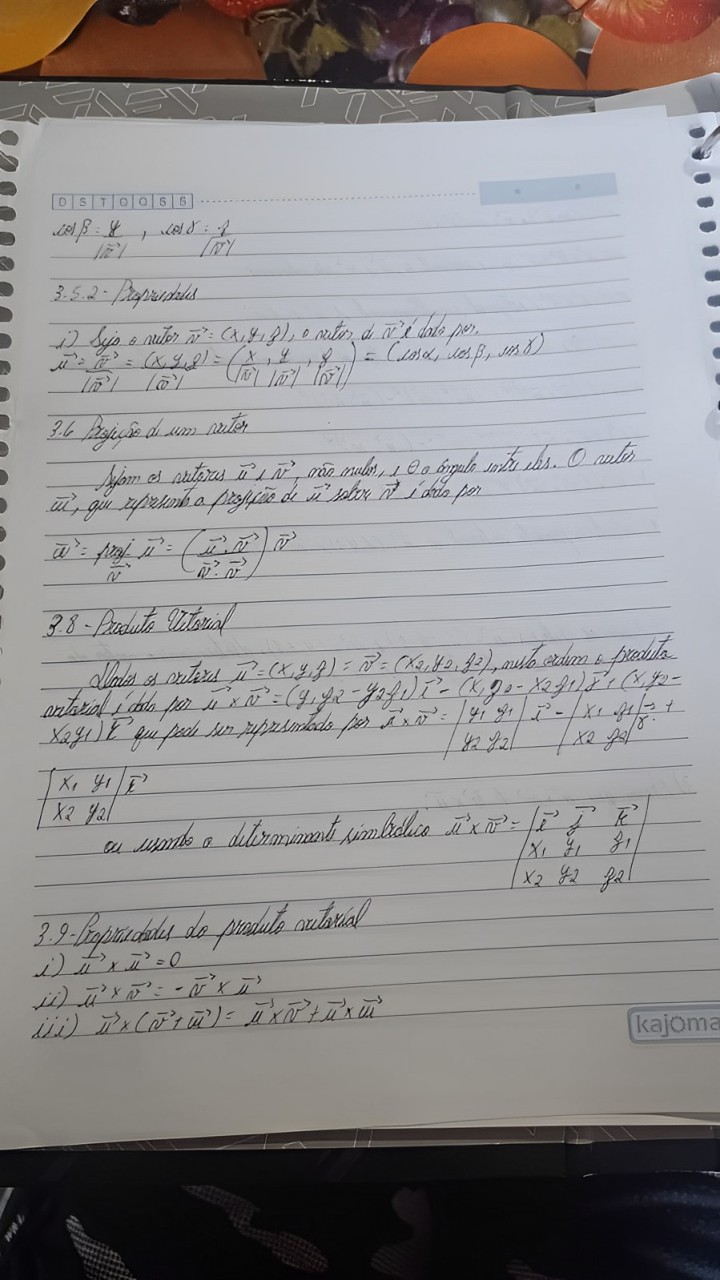 D S T Q Q S S
cos β = y/|v⃗| , cos γ = z/|v⃗|
3.5.2 - Propriedades
i) Seja o vetor v⃗ = (x, y, z), o vetor de v⃗ é dado por.
u⃗ = v⃗/|v⃗| = (x, y, z)/|v⃗| = (x/|v⃗|, y/|v⃗|, z/|v⃗|) = (cos α, cos β, cos γ)
3.6 Projeção de um vetor
Sejam os vetores u⃗ e v⃗, não nulos, e θ o ângulo entre eles. O vetor
w⃗, que representa a projeção de u⃗ sobre v⃗ é dado por
w⃗ = proj v⃗ u⃗ = (u⃗ . v⃗ / v⃗ . v⃗) v⃗
3.8 - Produto Vetorial
Dados os vetores u⃗ = (x, y, z) = v⃗ = (x2, y2, z2), nesta ordem o produto
vetorial é dado por u⃗ x v⃗ = (y1 z2 - y2 z1) i⃗ - (x1 z2 - x2 z1) j⃗ + (x1 y2 -
x2 y1) k⃗ que pode ser representado por u⃗ x v⃗ = |y1 z1; y2 z2| i⃗ - |x1 z1; x2 z2| j⃗ +
|x1 y1; x2 y2| k⃗
ou usando o determinante simbólico u⃗ x v⃗ = |i⃗ j⃗ k⃗; x1 y1 z1; x2 y2 z2|
3.9 - Propriedades do produto vetorial
i) u⃗ x u⃗ = 0
ii) u⃗ x v⃗ = - v⃗ x u⃗
iii) u⃗ x (v⃗ + w⃗) = u⃗ x v⃗ + u⃗ x w⃗
kajoma